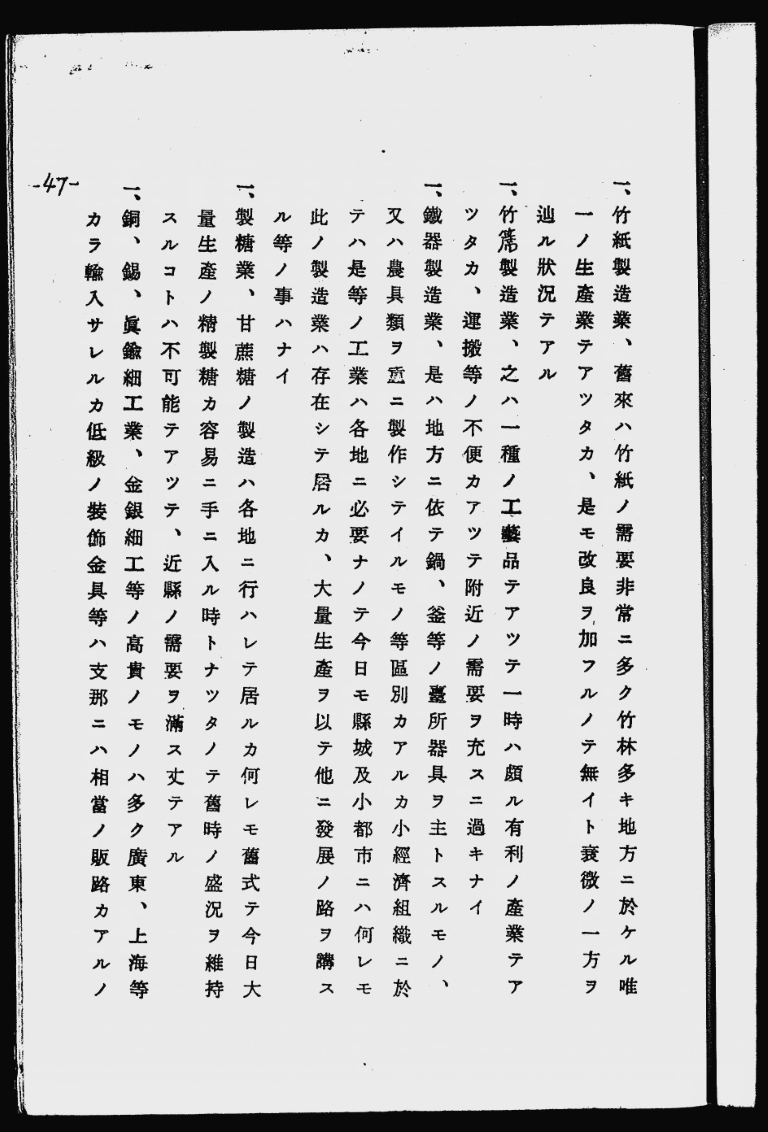 一、竹紙製造業、舊來ハ竹紙ノ需要非常ニ多ク竹林多キ地方ニ於ケル唯
一ノ生產業テアツタカ、是モ改良ヲ加フルノテ無イト衰微ノ一方ヲ
辿ル狀況テアル
一、竹席製造業、之ハ一種ノ工藝品テアツテ一時ハ頗ル有利ノ產業テア
ツタカ、運搬等ノ不便カアツテ附近ノ需要ヲ充スニ過キナイ
一、鐵器製造業、是ハ地方ニ依テ鍋、釜等ノ臺所器具ヲ主トスルモノ、
又ハ農具類ヲ重ニ製作シテイルモノ等區別カアルカ小經濟組織ニ於
テハ是等ノ工業ハ各地ニ必要ナノテ今日モ縣城及小都市ニハ何レモ
此ノ製造業ハ存在シテ居ルカ、大量生產ヲ以テ他ニ發展ノ路ヲ講ス
ル等ノ事ハナイ
一、製糖業、甘蔗糖ノ製造ハ各地ニ行ハレテ居ルカ何レモ舊式テ今日大
量生產ノ精製糖カ容易ニ手ニ入ル時トナツタノテ舊時ノ盛況ヲ維持
スルコトハ不可能テアツテ、近縣ノ需要ヲ滿ス丈テアル
一、銅、錫、眞鍮細工業、金銀細工等ノ高貴ノモノハ多ク廣東、上海等
カラ輸入サレルカ低級ノ裝飾金具等ハ支那ニハ相當ノ販路カアルノ
-47-